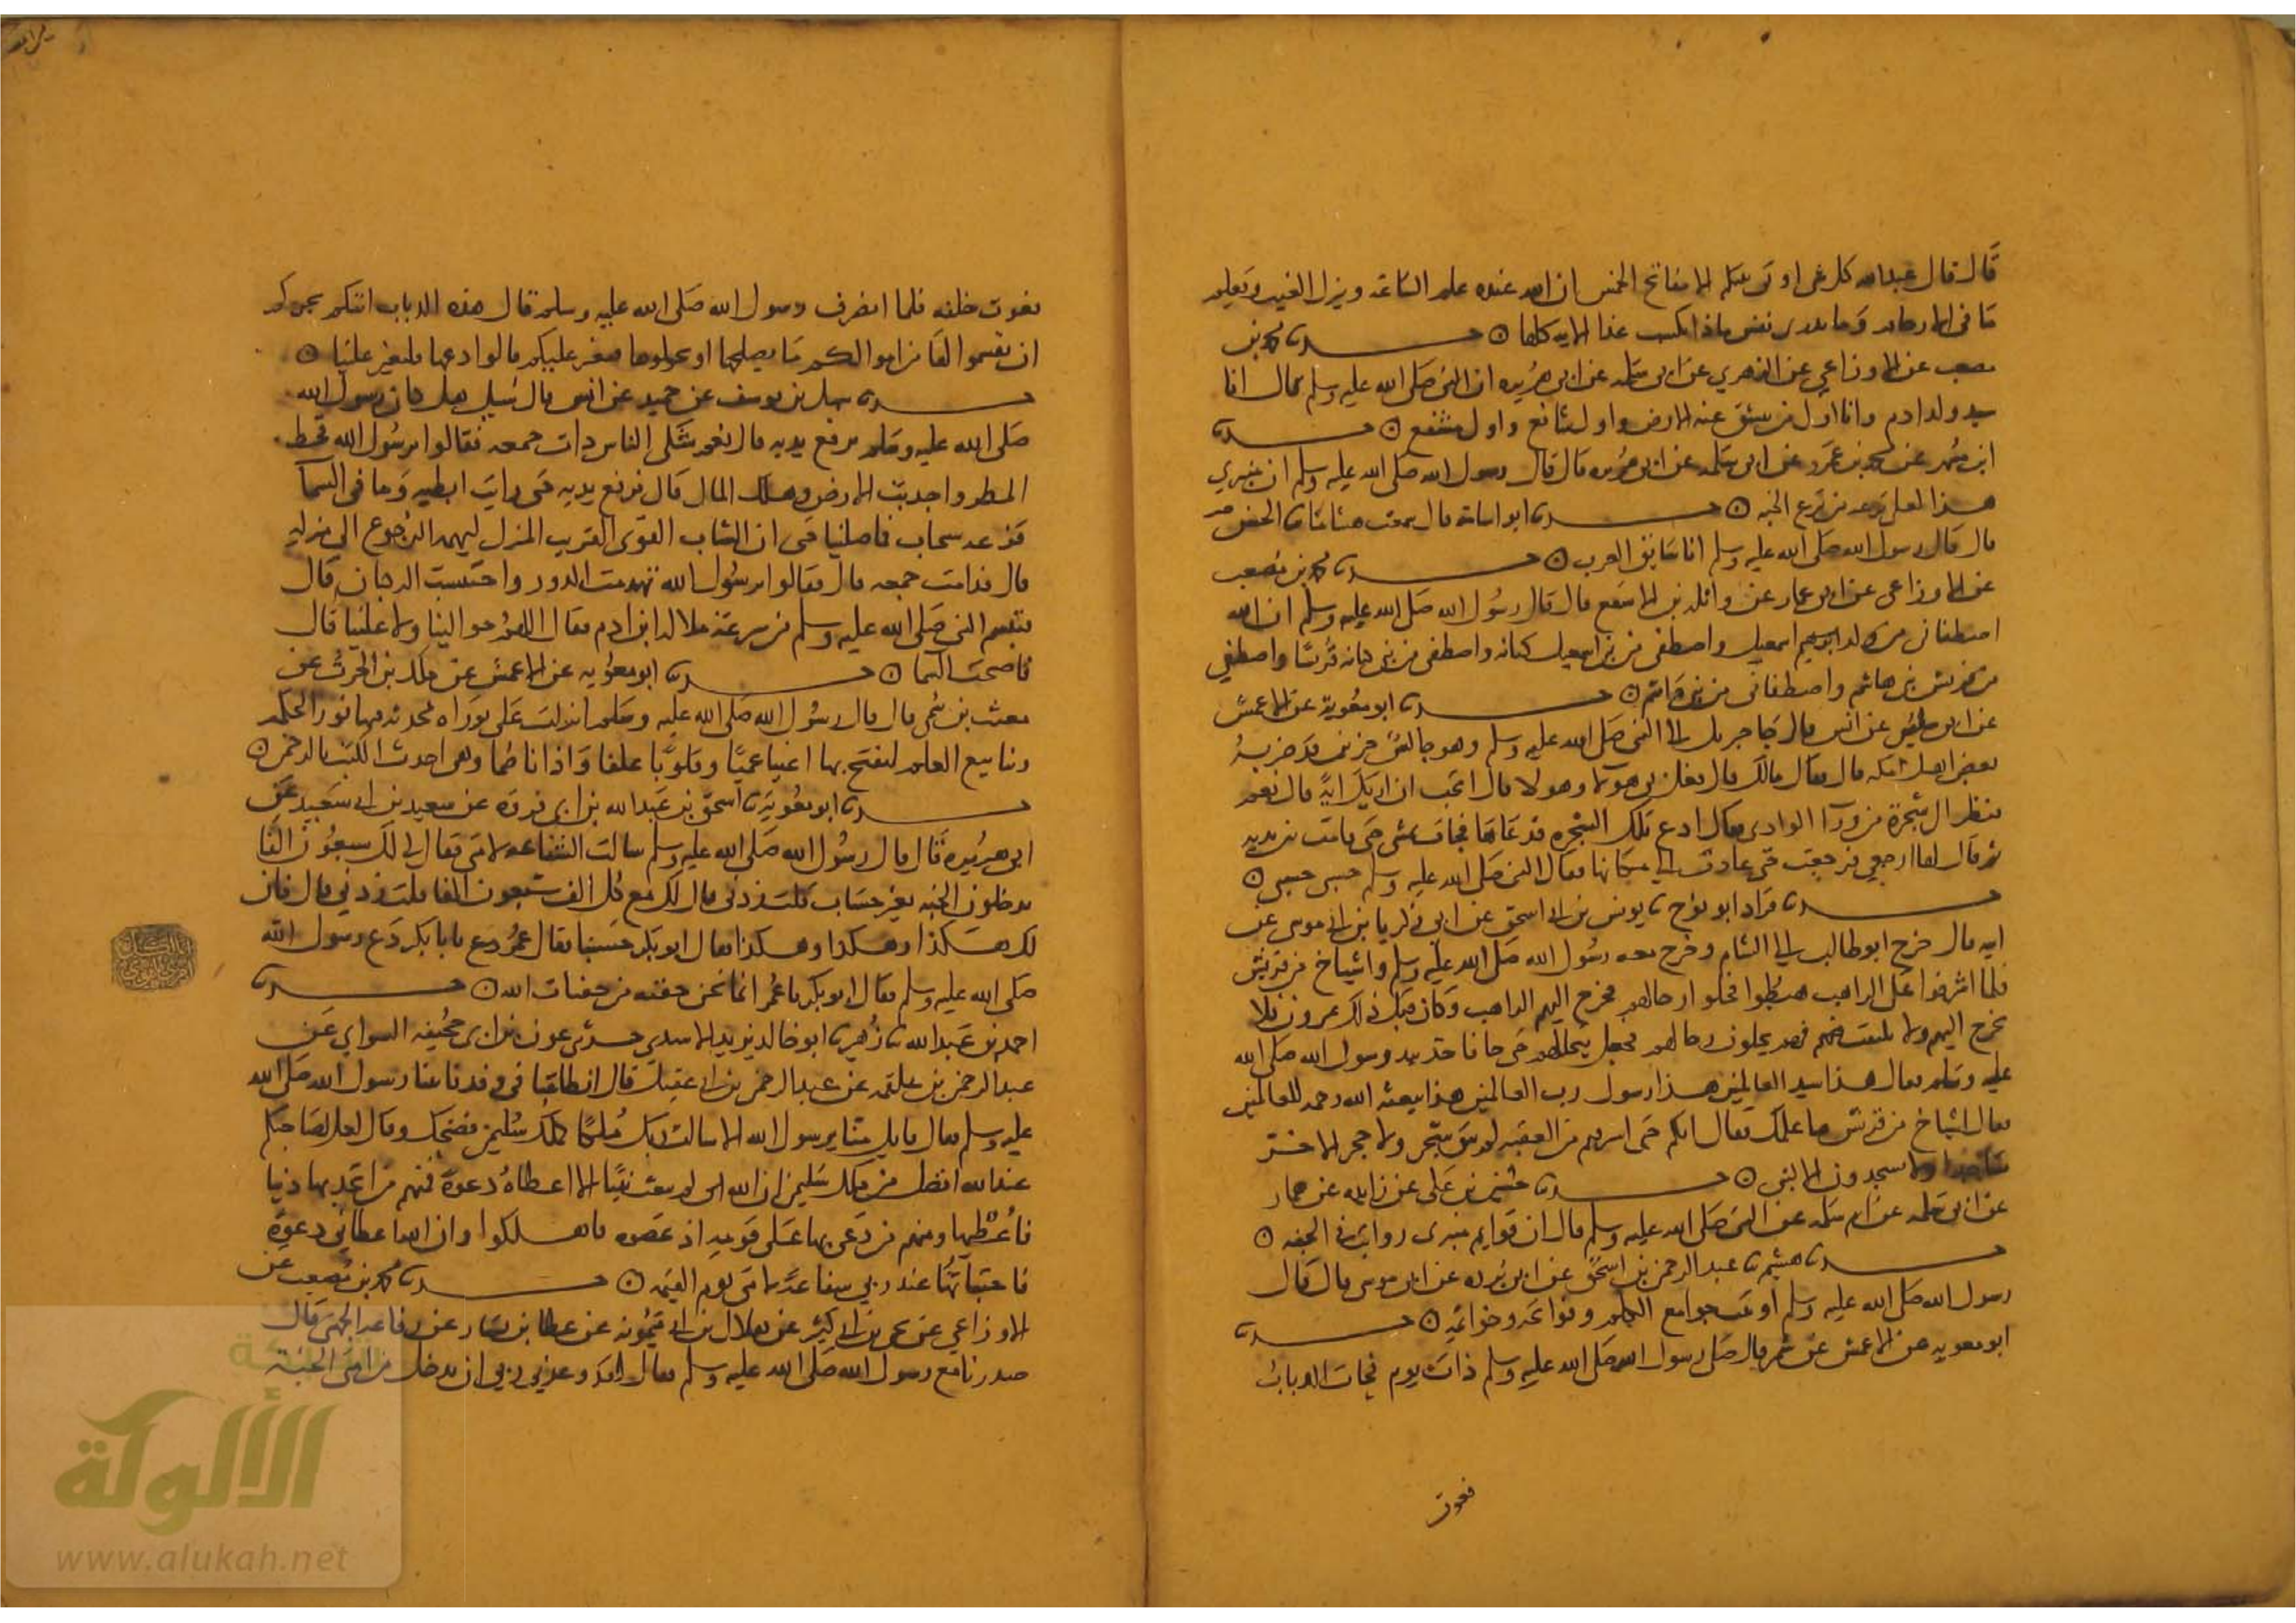 قال قال عبدالله كل شي اوتي نبيكم الا مفاتح الخمس ان الله عنده علم الساعة وينزل الغيث ويعلم
ما في الارحام وما تدري نفس ماذا تكسب غدا الاية كلها ○ حدثنا محمد بن
مصعب عن الاوزاعي عن الزهري عن ابي سلمه عن ابي هريره ان النبي صلى الله عليه وسلم قال انا
سيد ولد ادم وانا اول من تنشق عنه الارض واول شافع واول مشفع ○ حدثنا
ابن مسهر عن محمد بن عمرو عن ابي سلمه عن ابي هريره قال قال رسول الله صلى الله عليه وسلم ان منبري
هذا لعلى ترعه من ترع الجنه ○ حدثنا ابو اسامة قال سمعت هشاما ثنا الحسن
قال قال رسول الله صلى الله عليه وسلم انا سابق العرب ○ حدثنا محمد بن مصعب
عن الاوزاعي عن ابي عمار عن واثلة بن الاسقع قال قال رسول الله صلى الله عليه وسلم ان الله
اصطفى من ولد ابرهيم اسمعيل واصطفى من بني اسمعيل كنانه واصطفى من بني كنانه قريشا واصطفى
من قريش بني هاشم واصطفاني من بني هاشم ○ حدثنا ابو معوية عن الاعمش
عن ابي سفيان عن انس قال جا جبريل الى النبي صلى الله عليه وسلم وهو جالس حزين قد ضربه
بعض اهل مكه قال فقال مالك قال فعل بي هولا وهولا قال اتحب ان اريك اية قال نعم
فنظر الى شجرة من ورآ الوادي فقال ادع تلك الشجره فدعاها فجات تمشي حتى قامت بين يديه
ثم قال لها ارجعي فرجعت حتى عادت الى مكانها فقال النبي صلى الله عليه وسلم حسبي حسبي ○
حدثنا قراد ابو نوح ثنا يونس بن ابي اسحق عن ابي بكر بن ابي موسى عن
ابيه قال خرج ابو طالب الى الشام وخرج معه رسول الله صلى الله عليه وسلم واشياخ من قريش
فلما اشرفوا على الراهب هبطوا فحلوا رحالهم فخرج اليهم الراهب وكان قبل ذلك يمرون فلا
يخرج اليهم ولا يلتفت فهم يحلون رحالهم فجعل يتخللهم حتى جا فاخذ بيد رسول الله صلى الله
عليه وسلم فقال هذا سيد العالمين هذا رسول رب العالمين هذا يبعثه الله رحمه للعالمين
فقال اشياخ من قريش ما علمك فقال انكم حين اشرفتم من العقبه لم يبق شجر ولا حجر الا خر
ساجدا ولا يسجدون الا لنبي ○ حدثنا حسين بن علي عن زايده عن عمار
عن ابي سلمه عن ام سلمه عن النبي صلى الله عليه وسلم قال ان قوايم منبري رواتب في الجنه ○
حدثنا هشيم ثنا عبد الرحمن بن اسحق عن ابي برده عن ابي موسى قال قال
رسول الله صلى الله عليه وسلم اوتيت جوامع الكلم وفواتحه وخواتمه ○ حدثنا
ابو معويه عن الاعمش عن شمر قال صلى رسول الله صلى الله عليه وسلم ذات يوم فجات الذباب
فعوت
تعوت خلفه فلما انصرف رسول الله صلى الله عليه وسلم قال هذه الذياب اتتكم تخبركم
ان تقسموا لها من اموالكم ما يصلحها او تخلوها فتغير عليكم قالوا دعها فلتغير علينا ○
حدثنا سهل بن يوسف عن حميد عن انس قال سيل هل كان رسول الله
صلى الله عليه وسلم يرفع يديه قال نعم شكى الناس ذات جمعه فقالوا يرسول الله قحط
المطر واجدبت الارض وهلك المال قال فرفع يديه حتى رايت ابطيه وما في السما
قزعه سحاب فما صلينا حتى ان الشاب القوى القريب المنزل ليهمه الرجوع الى منزله
قال فدامت جمعه قال فقالوا يرسول الله تهدمت الدور واحتبست الركبان قال
فتبسم النبي صلى الله عليه وسلم من سرعة ملالة ابن ادم فقال اللهم حوالينا ولا علينا قال
فاصحت السما ○ حدثنا ابو معويه عن الاعمش عن ملك بن الحرث عن
مغيث بن سمي قال قال رسول الله صلى الله عليه وسلم انزلت علي توراه محدثه فيها نور الحكمه
وينابيع العلم لتفتح بها اعينا عميا وقلوبا غلفا واذانا صما وهي احدث الكتب بالرحمن ○
حدثنا ابو معوية ثنا اسحق بن عبدالله بن ابي فروه عن سعيد بن ابي سعيد عن
ابي هريره قال قال رسول الله صلى الله عليه وسلم سالت الشفاعه لامتي فقال لي لك سبعون الفا
يدخلون الجنه بغير حساب قلت زدني قال لك مع كل الف سبعون الفا قلت زدني قال فان
لك هكذا وهكذا وهكذا فقال ابو بكر حسبنا فقال عمر دع يا با بكر دع رسول الله
صلى الله عليه وسلم فقال ابو بكر يا عمر انما نحن حفنه من حفنات الله ○ حدثنا
احمد بن عبدالله ثنا زهير ثنا ابو خالد يزيد الاسدي حدثني عون بن ابي جحيفه السوايي عن
عبد الرحمن بن علقمه عن عبد الرحمن بن ابي عقيل قال انطلقنا في وفد فاتينا رسول الله صلى الله
عليه وسلم فقال قايل منا يرسول الله الا سالت ربك ملكا كملك سليمن فضحك وقال لعل لصاحبكم
عند الله افضل من ملك سليمن ان الله لم يبعث نبيا الا اعطاه دعوة فمنهم من اتخذ بها دنيا
فاعطيها ومنهم من دعى بها على قومه اذ عصوه فاهلكوا وان الله اعطاني دعوة
فاختباتها عند ربي شفاعة لامتي يوم القيمه ○ حدثنا محمد بن مصعب عن
الاوزاعي عن يحيى بن ابي كثير عن هلال بن ابي ميمونه عن عطا بن يسار عن رفاعه الجهني قال
صدرنا مع رسول الله صلى الله عليه وسلم فقال لقد وعدني ربي ان يدخل من امتي الجنة
الألوكة
www.alukah.net